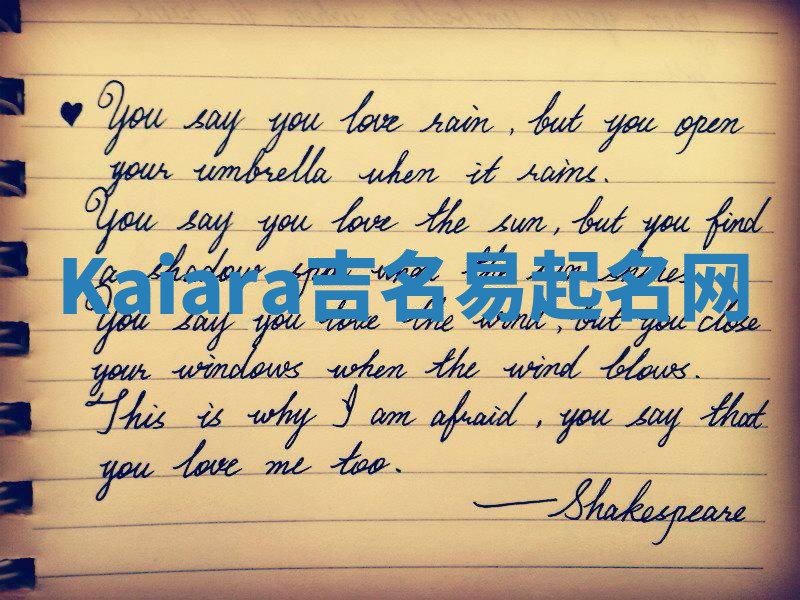 ♥ You say you love rain, but you open
your umbrella when it rains.
You say you love the sun, but you find
a shadow spot when the sun shines.
Kaiara吉名易起名网
You say you love the wind, but you close
your windows when the wind blows.
This is why I am afraid, you say that
you love me too.
—Shakespeare